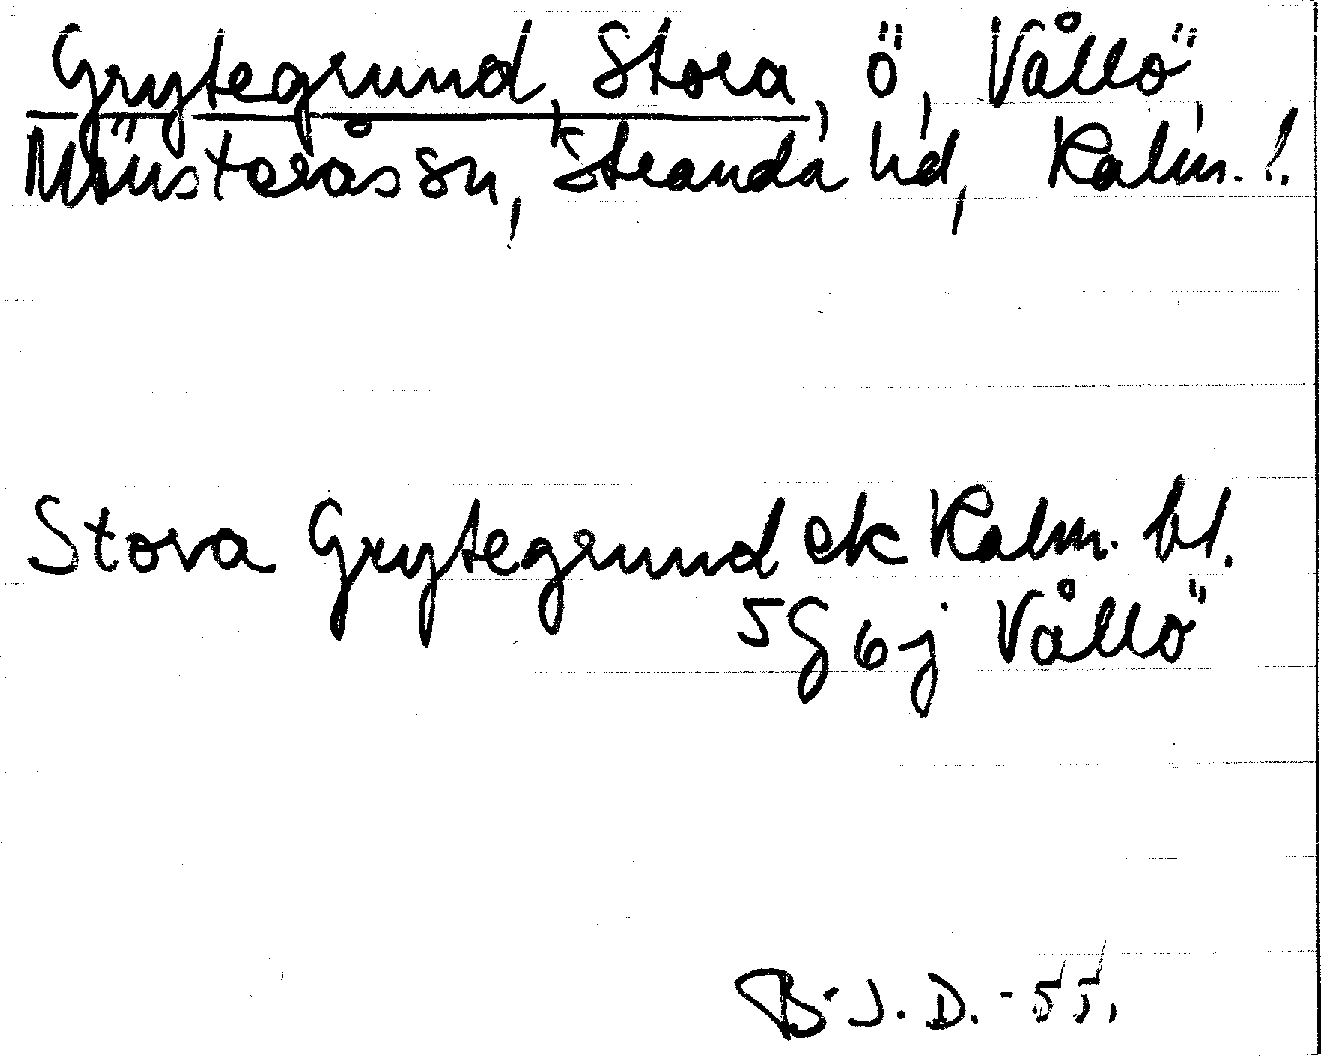 Grytegrund, Stora, ö, Vållö,
Mönsterås sn, Stranda hd, Kalm. l.
Stora Grytegrund ek Kalm. bl.
5G6j Vållö
B. J. D. - 55.